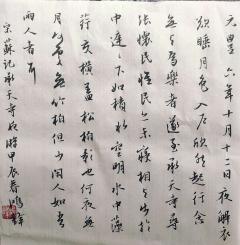 元豐六年十月十二日夜解衣
欲睡月色入户欣然起行念
無與為樂者遂至承天寺尋
張懷民懷民亦未寢相與步於
中庭庭下如積水空明水中藻
荇交橫蓋松柏影也何夜無
月何處無竹柏但少闲人如吾
兩人者耳
宋蘇記承天寺夜游甲辰春